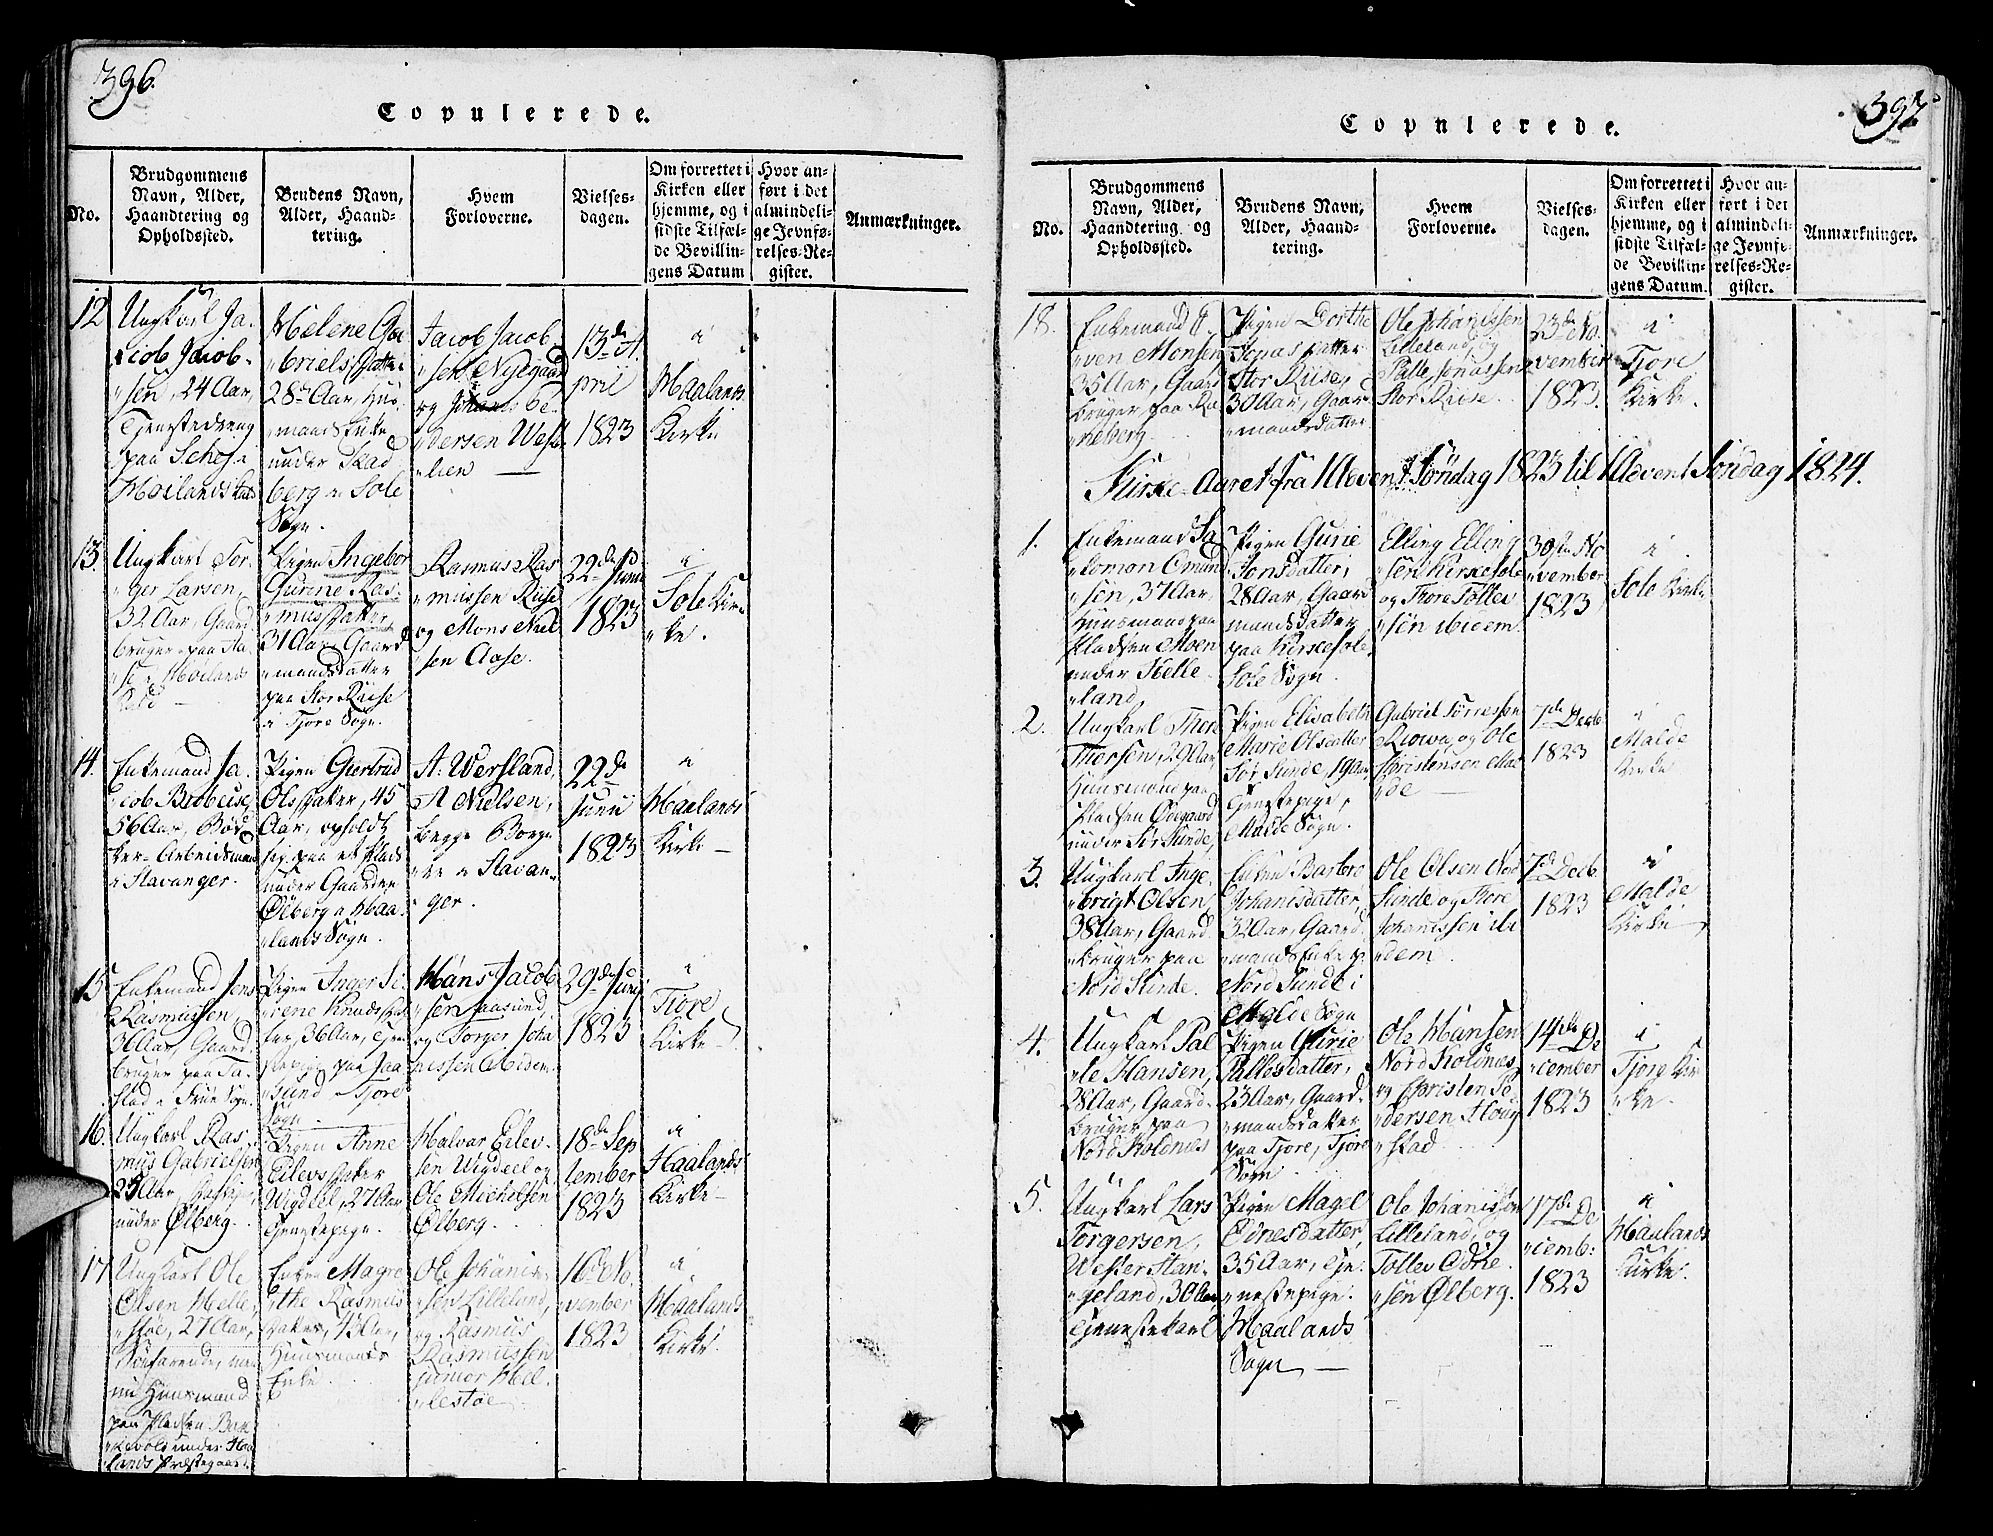 396.
Copulerede.
No.
Brudgommens
Navn, Alder,
Haandtering og
Opholdssted.
Brudens Navn,
Alder, Haand-
tering.
Hvem
Forloverne.
Vielses-
dagen.
Om forrettet i
Kirken eller
hjemme, og i
sidste Tilfæl-
de Bevillin-
gens Datum
Hvor an-
ført i det
almindeli-
ge Jevnfø-
relses-Re-
gister.
Anmærkninger.
12
Ungkarl Ja-
cob Jacob-
sen, 24 Aar,
Tjenestedreng
paa
Helene Ga-
briels Datter
28 Aar, Huus-
mands Enke
under Skad
berg i Sole
Sogn.
Jacob Jacob-
sen Nygaard
og Johans Pe-
dersen West
lien
13de A
pril
1823
i
Haalands
Kirke
13.
Ungkarl Tor-
ger Larsen,
32 Aar, Gaard
bruger paa
Pigen Ingebor
Gurine Ras-
mus Datter
31 Aar Gaard
mandsdatter
paa Stor Riise
i Tjore Sogn.
Rasmus Ras
mussen Riise
og Mons Niel
sen Aase.
22de Juni
1823
i
Sole Kir-
ke.
14.
Enkemand Ja-
cob
56 Aar, Bød
ker-Arbeidsmand
i Stavanger.
Pigen Giertrud
Ols Datter, 45
Aar, opholdt
sig paa et Plads
under Gaarden
Ølberg i Haa-
lands Sogn.
A: Wersland,
A Nielsen,
begge Borge
re i Stavan-
ger.
22de
Junii
1823
i
Haalands
Kirke
15
Enkemand Jens
Rasmussen,
Aar, Gaard
bruger paa Ta-
stad i Frue Sogn
Pigen Inger Si-
rene Knuds Dat
ter, 36 Aar, Tjen
estepige paa Jaa
sund Tjore
Sogn
Hans Jacob
sen Jaasund,
og Torger Joha
nissen ibidem
29de Juni
1823
i
Tjore
Kirke
16.
Ungkarl Ras-
mus Gabrielsen
25 Aar,
under Ølberg.
Pigen Anne
Eilevs Datter
Wigdeel, 27 Aar
Tjenestepige.
Halvar Eilev-
sen Wigdeel og
Ole Michelsen
Ølberg.
18de Sep
tember
1823
i
Haalands
Kirke
17
Ungkarl Ole
Olsen Helle-
støe, 27 Aar,
Søefarende, men
nu Huusmand
paa Pladsen
under Haa
lands Præstegaard.
Enken Magre
the Rasmus
Datter, 43 Aar,
Huusmands
Enke
Ole Johanis-
sen Lilleland,
og Rasmus
Rasmussen
junior Hel-
lestøe
16de No-
vember
1823
i
Haalands
Kirke.
397
Copulerede.
No.
Brudgommens
Navn, Alder,
Haandtering og
Opholdssted.
Brudens Navn,
Alder, Haand-
tering.
Hvem
Forloverne.
Vielses-
dagen.
Om forrettet i
Kirken eller
hjemme, og i
sidste Tilfæl-
de Bevillin-
gens Datum.
Hvor an-
ført i det
almindeli-
ge Jevnfø-
relses-Re-
gister.
Anmærkninger.
18.
Enkemand
Monsen
35 Aar, Gaard
bruger paa
Pigen Dorthe
Jonas Datter
Stor Riise,
30 Aar, Gaard
mandsdatter
Ole Johanissen
Lilleland, og
Palle Jonassen
Stor Riise.
23de No-
vember
1823.
i
Tjore
Kirke.
Kirke-Aaret fra 1 Advent Søndag 1823 til 1 Advent Søndag 1824.
1.
Enkemand Sa
lomon Omund
sen, 37 Aar,
Huusmand paa
Pladsen Moen
under Helle
land
Pigen Gurie
Jonsdatter,
28 Aar, Gaard
mands Datter
paa Kirkesole
Sole Sogn.
Elling Elling
sen Kirkesole
og Thore Tollev
sen ibidem.
30te No
vember
1823
i
Sole Kirke
2.
Ungkarl Thore
Thorsen, 29 Aar,
Huusmand paa
Pladsen Ødegaard
under Sør Sunde,
Pigen Elisabeth
Marie Olsdatter
Sør Sunde, 19 Aar
Tjenestepige,
Malde Sogn.
Gabriel Tørressen
og Ole
Christensen Mal
de
7de Decb.
1823
i
Malde
Kirke
3.
Ungkarl Inge-
brigt Olsen,
38 Aar, Gaard
bruger paa
Nord Sunde.
Enken Barbro
Johanisdatter,
32 Aar, Gaard
mands Enke p.
Nord Sunde i
Malde Sogn
Ole Olsen Nord
Sunde og Thore
Johanissen ibi
dem.
7de Decb.
1823
i
Malde
Kirke
4.
Ungkarl Pal
le Hansen,
28 Aar, Gaard-
bruger paa
Nord Kolnes
Pigen Gurie
Pallesdatter,
23 Aar, Gaard-
mandsdatter
paa Tjore, Tjore
Sogn
Ole Hansen
Nord Kolnes,
og Christen Pe
dersen Houg
stad
14de De
cember
1823
i
Tjore Kir
ke.
5.
Ungkarl Lars
Torgersen,
Wester Stan-
geland, 30 Aar,
Tjenestekarl
Pigen Magel
Ednesdatter,
35 Aar, Tje-
nestepige.
Haalands
Sogn
Ole Johanissen
Lilleland, og
Tollev Edne
sen Ølberg.
17de De
cemb:
1823
i
Haalands
Kirke.